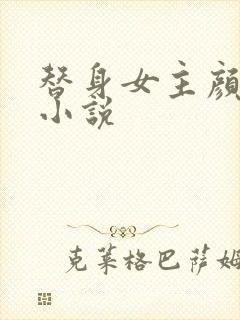 替身女主颜
小说
克莱格巴萨姆